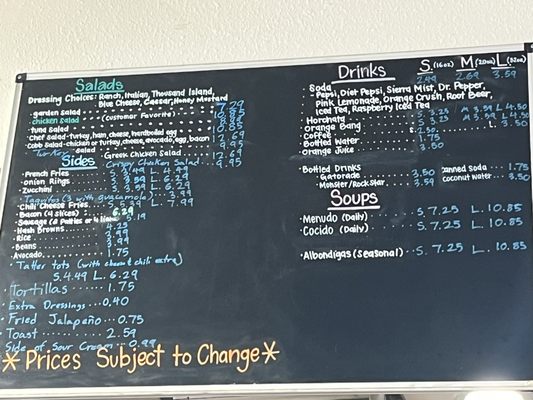 Salads
Dressing Choices: Ranch, Italian, Thousand Island,
Blue Cheese, Caesar, Honey Mustard
garden Salad 7.29
chicken Salad (Customer Favorite)
tuna Salad 10.85
Chef Salad-turkey, ham, cheese, hardboiled egg 12.69
Cobb Salad-chicken or turkey, cheese, avocado, egg, bacon 12.69
Salad 9.95
Greek Chicken Salad 12.69
Crispy Chicken Salad 9.95
Sides
French Fries S. 3.49 L. 4.99
Onion Rings S. 3.59 L. 6.29
Zucchini S. 3.59 L. 6.29
Taquitos (3 with guacamole) 3.99
Chili Cheese Fries S. 5.39 L. 7.99
Bacon (4 slices) 6.29
Sausage (2 Patties or 4 links)
Hash Browns 4.25
Rice 3.99
Beans 3.99
Avocado 1.75
Tatter tots (with cheese & chili extra)
S. 4.49 L. 6.29
Tortillas 1.75
Extra Dressings 0.40
Fried Jalapeño 0.75
Toast 2.59
Side of Sour Cream 0.99
*Prices Subject to Change*
Drinks S. (16oz) M (20oz) L (32oz)
Soda 2.49 2.69 3.59
- Pepsi, Diet Pepsi, Sierra Mist, Dr. Pepper,
Pink Lemonade, Orange Crush, Root Beer,
Iced Tea, Raspberry Iced Tea
Horchata S. 3.25 M 3.59 L 4.50
Orange Bang S. 3.25 M 3.59 L 4.50
Coffee S. 2.50 L. 3.50
Bottled Water 1.75
Orange Juice 3.50
Bottled Drinks
Gatorade 3.50
Monster/Rockstar 3.59
Canned Soda 1.75
Coconut Water 3.50
Soups
Menudo (Daily) S. 7.25 L. 10.85
Cocido (Daily) S. 7.25 L. 10.85
Albondigas (Seasonal) S. 7.25 L. 10.85